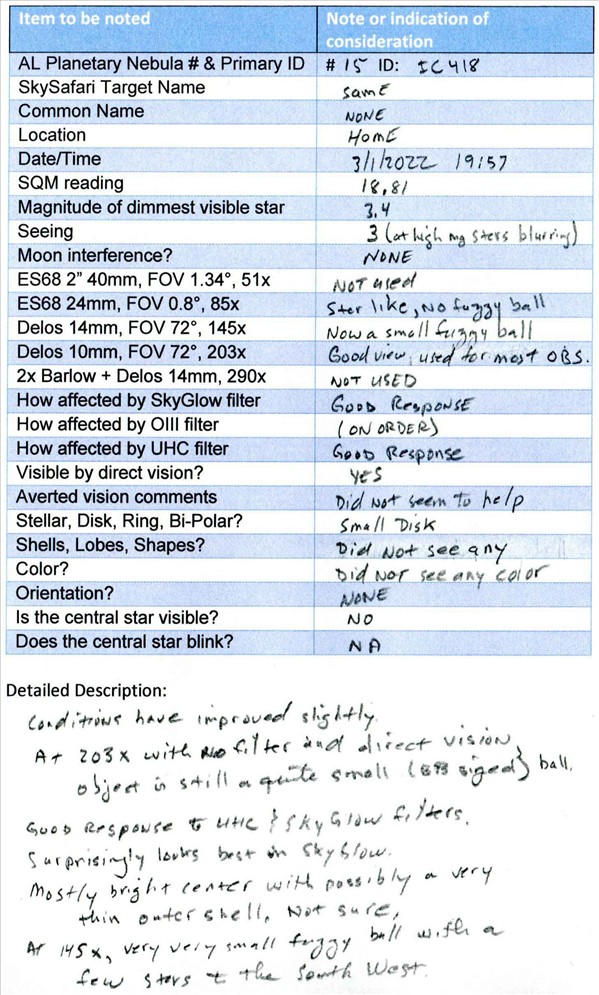 Item to be noted Note or indication of consideration
AL Planetary Nebula # & Primary ID # 15 ID: IC418
SkySafari Target Name SAME
Common Name NONE
Location HOME
Date/Time 3/1/2022 19:57
SQM reading 18.81
Magnitude of dimmest visible star 3.4
Seeing 3 (at high mg stars blurring)
Moon interference? NONE
ES68 2" 40mm, FOV 1.34°, 51x NOT used
ES68 24mm, FOV 0.8°, 85x Star like, No fuzzy ball
Delos 14mm, FOV 72°, 145x Now a small fuzzy ball
Delos 10mm, FOV 72°, 203x Good view, used for most OBS.
2x Barlow + Delos 14mm, 290x NOT USED
How affected by SkyGlow filter GOOD RESPONSE
How affected by OIII filter (ON ORDER)
How affected by UHC filter GOOD Response
Visible by direct vision? YES
Averted vision comments Did Not seem to help
Stellar, Disk, Ring, Bi-Polar? Small DISK
Shells, Lobes, Shapes? Did Not see any
Color? Did NOT see any color
Orientation? NONE
Is the central star visible? NO
Does the central star blink? NA
Detailed Description:
Conditions have improved slightly.
At 203x with No filter and direct vision,
object is still a quite small (BB sized) ball.
Good Response to UHC & SkyGlow filters.
Surprisingly looks best in SkyGlow.
Mostly bright center with possibly a very
thin outer shell, Not sure,
At 145x, very very small fuzzy ball with a
few stars to the South West.